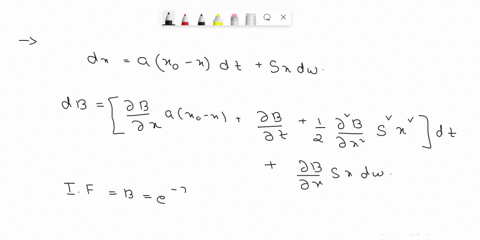 →
dx = a(x₀ - x) dt + Sx dw.
dB = [∂B/∂x a(x₀ - x) + ∂B/∂t + 1/2 ∂²B/∂x² S² x²] dt
+ ∂B/∂x Sx dw.
I.F = B = e⁻